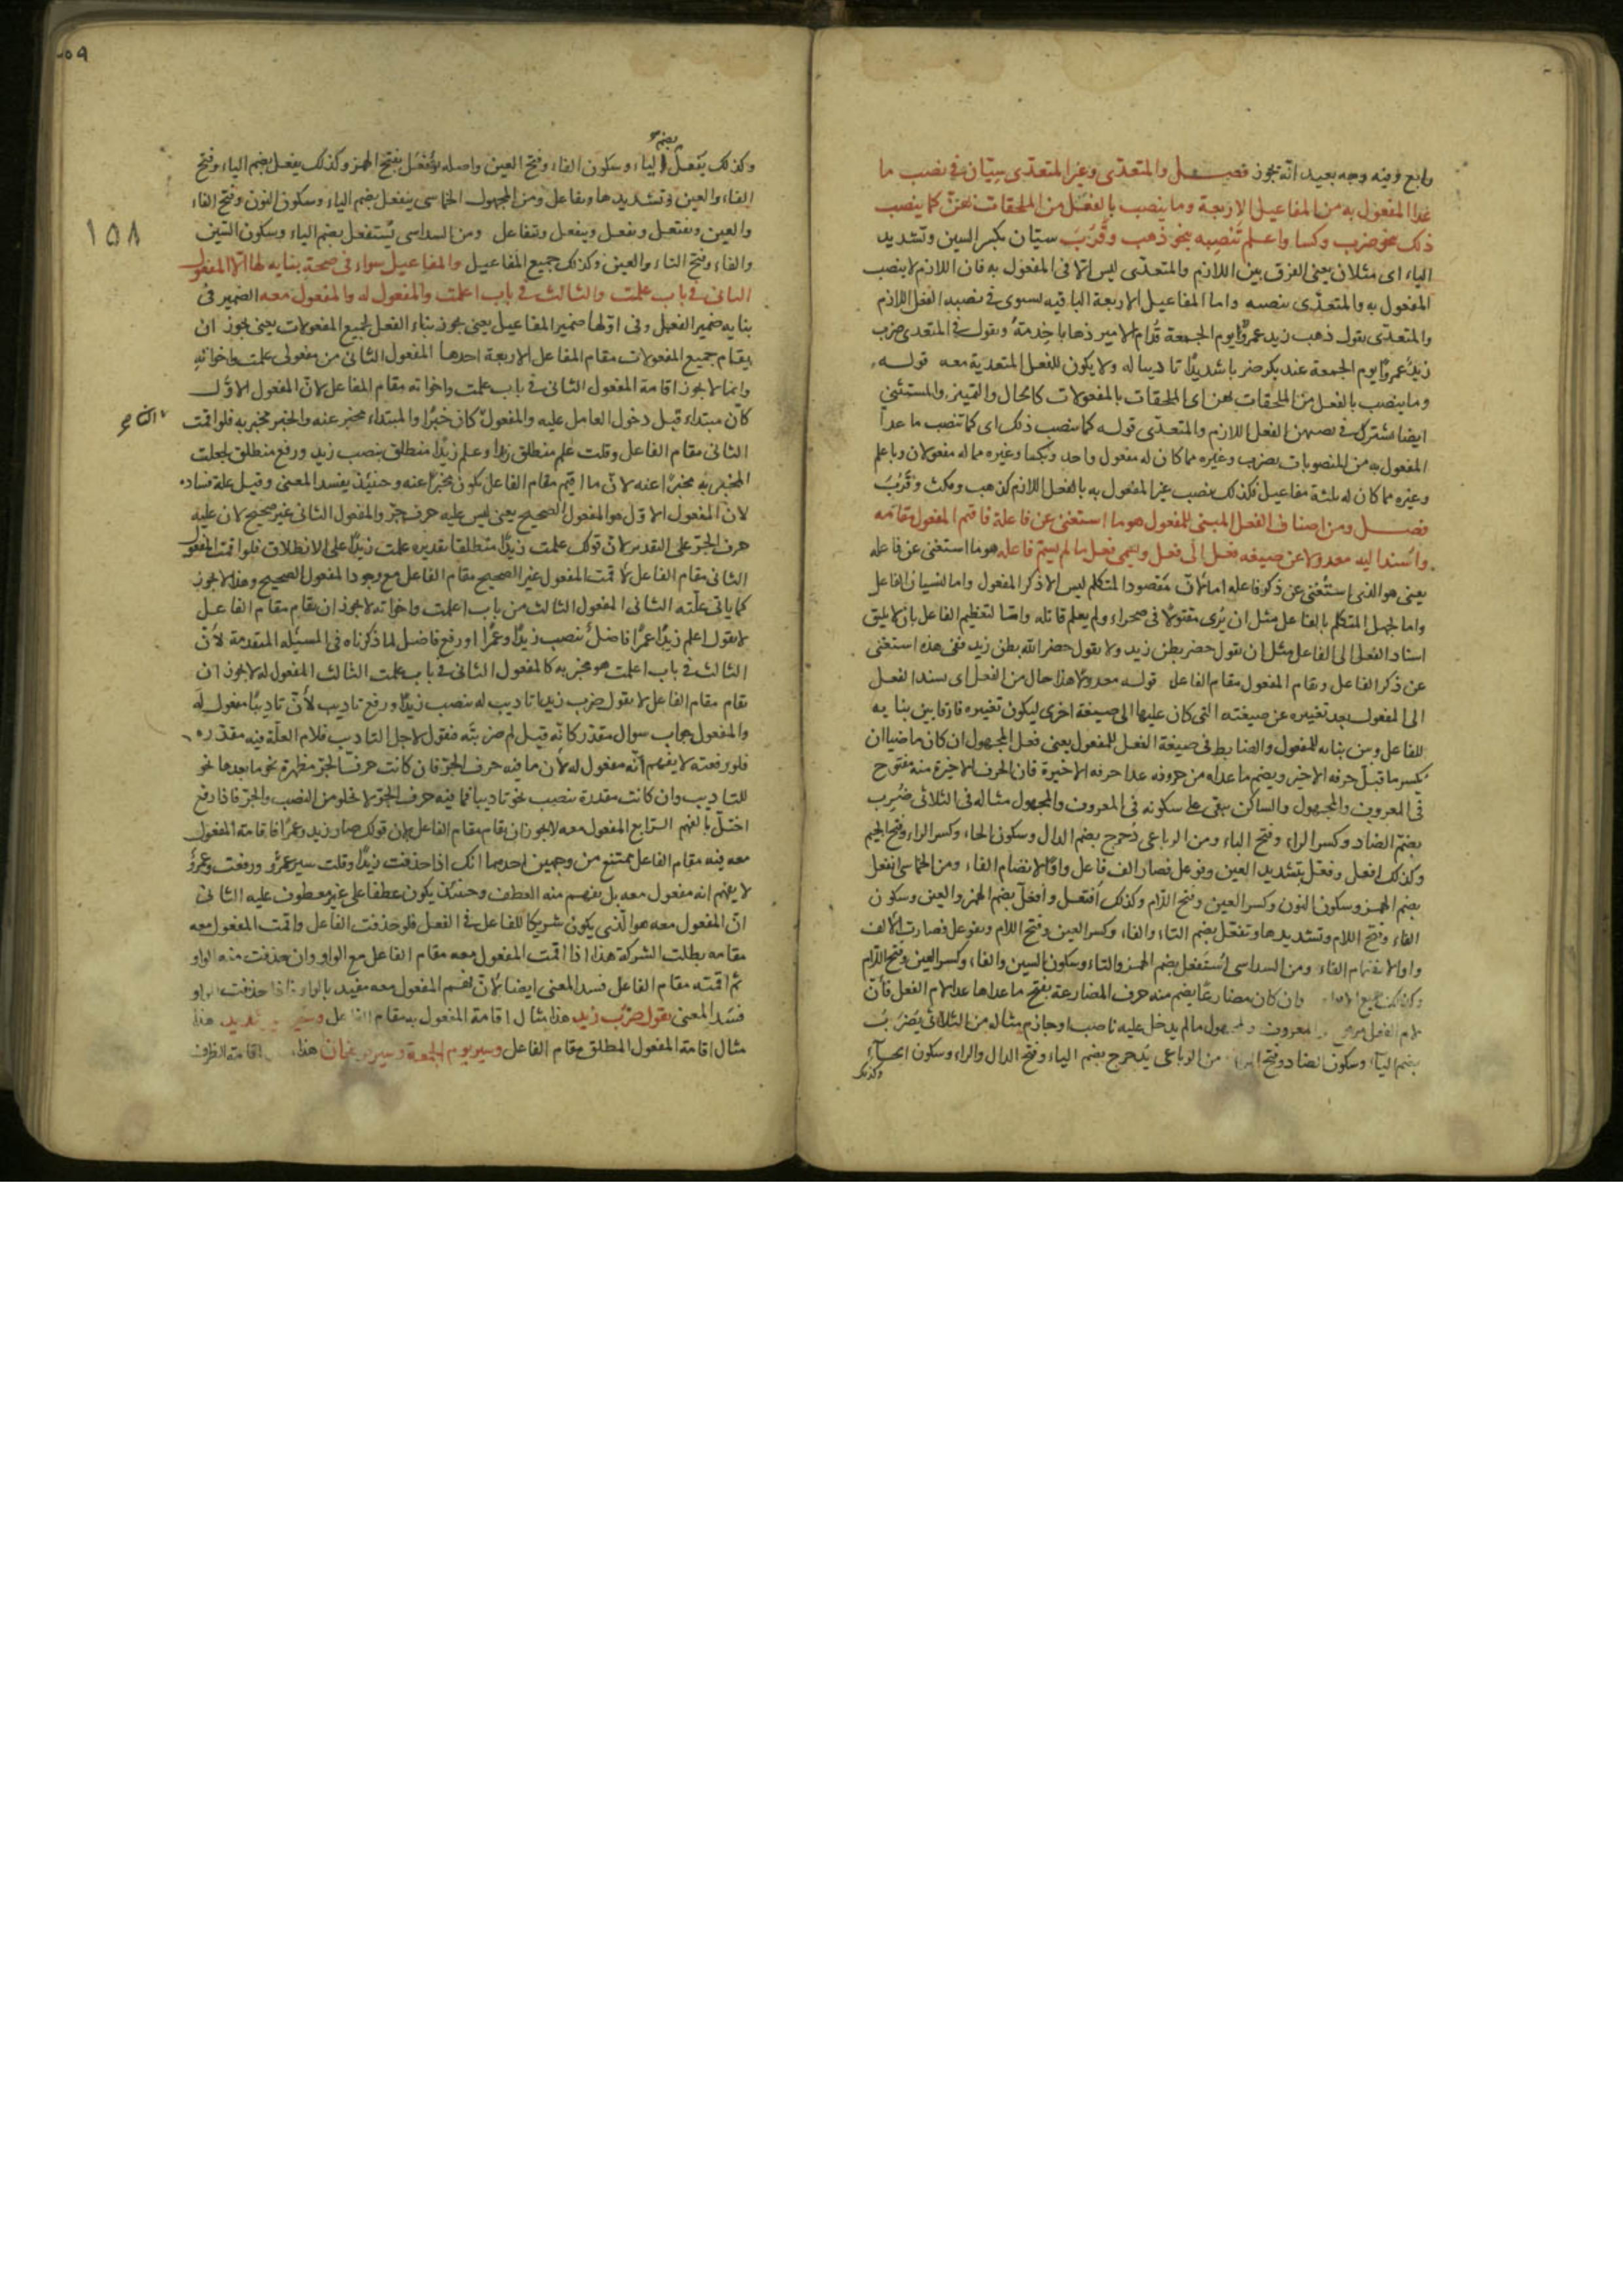 رابع وفيه وجه بعيد انّه يجوز فصل والمتعدّى وغير المتعدّى سيّان فى نصب ما
عدا المفعول به من المفاعيل الاربعة وما ينصب بالفعل من الملحقات بهنّ كما ينصب
ذلك بنحو ضرب وكسا واعلم تنصبه بنحو ذهب وقرب سيّان بكسر السين وتشديد
الياء اى مثلان يعنى الفرق بين اللازم والمتعدّى ليس الا فى المفعول به فان اللازم لا ينصب
المفعول به والمتعدّى ينصبه واما المفاعيل الاربعة الباقيه يستوى فى نصبه الفعل اللازم
والمتعدّى يقول ذهب زيد عمروًا يوم الجمعة قدام الامير ذهابا خدمةً ويقول فى المتعدى ضرب
زيدٌ عمروًا يوم الجمعة عند بكر ضربا شديدًا تاديبا له ولا يكون للفعل المتعدية معه قوله
وما ينصب بالفعل من الملحقات بهن اى الملحقات بالمفعولات كالحال والتمييز والمستثنى
ايضا يشترك فى نصبهن الفعل اللازم والمتعدّى قوله كما ينصب ذلك اى كما تنصب ما عدا
المفعول به من المنصوبات بضرب وغيره مما كان له مفعول واحد وبكسا وغيره مما له مفعولان وباعلم
وغيره مما كان له ثلثة مفاعيل فكذلك ينصب غير المفعول به بالفعل اللازم كذهب ومكث وقرُبَ
فصل ومن اصناف الفعل المبنى للمفعول هو ما استغنى عن فاعله فاقيم المفعول مقامه
واسند اليه معدولا عن صيغه فعل الى فعل ويسمى فعل ما لم يسم فاعله هو ما استغنى عن فاعله
يعنى هو الذى استُغنى عن ذكر فاعله اما لانّ مقصود المتكلم ليس الا ذكر المفعول واما لنسيان الفاعل
واما لجهل المتكلم بالفاعل مثل ان يُرى مقتولا فى صحراء ولم يعلم قاتله وامّا لتعظيم الفاعل بان لا يليق
اسناد الفعل الى الفاعل مثل ان يقول حضر بطن زيد ولا يقول حضر الله بطن زيد ففى هذه استغنى
عن ذكر الفاعل ويقام المفعول مقام الفاعل قوله معدولا هذا حال من الفعل اى يسند الفعل
الى المفعول بعد تغييره عن صيغته التى كان عليها الى صيغة اخرى ليكون تغييره فارقا بين بنايه
للفاعل وبين بنايه للمفعول والضابط فى صيغة الفعل للمفعول يعنى فعل المجهول ان كان ماضيا ان
يكسر ما قبل حرفه الاخير ويضم ما عداه من حروفه عدا حرفه الاخيرة فان الحرف الاخيرة منه مفتوح
فى المعروف والمجهول والساكن يبقى على سكونه فى المعروف والمجهول مثاله فى الثلاثى ضُرِب
بضم الضاد وكسر الراء وفتح الباء ومن الرباعى دُحرج بضم الدال وسكون الحاء وكسر الراء وفتح الجيم
وكذلك افعل وفعّل بتشديد العين وفوعل فصار الف فاعل واوًا لانضمام الفاء ومن الخماسى انفعل
بضم الهمز وسكون النون وكسر العين وفتح اللام وكذلك افتعل وافعلّ بضم الهمز والعين وسكون
الفاء وفتح اللام وتشديدها وتفعّل بضم التاء والفاء وكسر العين وفتح اللام وتفوعل فصارت الالف
واوا لانضمام الفاء ومن السداسى اُستُفعل بضم الهمز والتاء وسكون السين والفاء وكسر العين وفتح اللام
وكذلك جميع وان كان مضارعًا يضم منه حرف المضارعة يفتح ما عداها عدا لام الفعل فانّ
لام الفعل المعروف والمجهول ما لم يدخل عليه ناصب او جازم مثاله من الثلاثى يُضرَبُ
بضم الياء وسكون الضاد وفتح الراء من الرباعى يُدحرج بضم الياء وفتح الدال والراء وسكون الحاء
وكذلك
٥٩
١٥٨
بضم
وكذلك يفعل الياء وسكون الفاء وفتح العين واصله يؤفعل بفتح الهمز وكذلك يفعل بضم الياء وفتح
الفاء والعين وتشديدها ويفاعل ومن المجهول الخماسى ينفعل بضم الياء وسكون النون وفتح الفاء
والعين ويفتعل ويفعل ويتفعل ويتفاعل ومن السداسى يُستفعل بضم الياء وسكون السّين
والفاء وفتح التاء والعين وكذلك جميع المفاعيل والمفاعيل سواء فى صحة بنايه لها الّا المفعول
الثانى فى باب علمت والثالث فى باب اعلمت والمفعول له والمفعول معه الضمير فى
بنايه ضمير الفعل وفى لها ضمير المفاعيل يعنى يجوز بناء الفعل لجميع المفعولات يعنى يجوز ان
يقام جميع المفعولات مقام الفاعل الا اربعة احدها المفعول الثانى من مفعولى علمت واخواته
وانما لا يجوز اقامة المفعول الثانى فى باب علمت واخواته مقام الفاعل لانّ المفعول الاوّل
كان مبتداء قبل دخول العامل عليه والمفعول كان خبرًا والمبتداء مخبر عنه والخبر مخبر به فلو اقمت
الثانى مقام الفاعل وقلت عُلم منطلق زيدا وعلم زيدًا منطلق بنصب زيد ورفع منطلق لجعلت
المخبر به مخبرًا عنه لانّ ما اقيم مقام الفاعل يكون مخبرًا عنه وحينئذ يفسد المعنى وقيل علة فساده
لان المفعول الاوّل هو المفعول الصحيح يعنى ليس عليه حرف جرّ والمفعول الثانى غير صحيح لان عليه
حرف الجرّ على التقدير لانّ قولك علمت زيدًا منطلقا تقديره علمت زيدًا على الانطلاق فلو اقمت المفعول
الثانى مقام الفاعل لاقمت المفعول غير الصحيح مقام الفاعل مع وجود المفعول الصحيح وهذا لا يجوز
كما ياتى علّته الثانى المفعول الثالث من باب اعلمت واخواته لا يجوز ان يقام مقام الفاعل
لا يقول اعلم زيدًا عمرًا فاضلٌ بنصب زيدًا وعمرًا ورفع فاضل لما ذكرناه فى المسئله المتقدمة لانّ
الثالث فى باب اعلمت هو مخبر به كالمفعول الثانى فى باب علمت الثالث المفعول له لا يجوز ان
يقام مقام الفاعل لا يقول ضرب زيدا تاديب له بنصب زيدًا ورفع تاديب لانّ تاديبًا مفعول له
والمفعول جواب سوال مقدّر كانّه قيل لم ضربته فنقول لاجل التاديب فلام العلّة فيه مقدّره
فلو رفعته لا يفهم انّه مفعول له لان ما فيه حرف الجرّ فان كانت حرف الجرّ مظهرة يجر ما بعدها نحو
للتاديب وان كانت مقدرة ينصب نحو تاديبا فما فيه حرف الجرّ لا يخلو من النصب والجرّ فاذا رفع
اختلّ بالفهم الرّابع المفعول معه لا يجوز ان يقام مقام الفاعل لان قولك صار زيد وعمرًا فاقامة المفعول
معه فيه مقام الفاعل ممتنع من وجهين احدهما انك اذا حذفت زيدًا وقلت سير وعمرٌو ورفعت وعمرٌو
لا يفهم انه مفعول معه بل يفهم منه العطف وحينئذ يكون عطفا على غير معطوف عليه الثانى
انّ المفعول معه هو الّذى يكون شريكًا للفاعل فى الفعل فلو حذفت الفاعل واقمت المفعول معه
مقامه بطلت الشركة هذا اذا اقمت المفعول معه مقام الفاعل مع الواو وان حذفت منه الواو
ثم اقمته مقام الفاعل فسد المعنى ايضا لانّ المفعول معه مقيد بالواو فاذا حذفت الواو
فسد المعنى يقول ضرب زيد هذا مثال اقامة المفعول به مقام الفاعل وسير شديد هذا
مثال اقامة المفعول المطلق مقام الفاعل وسير يوم الجمعة وسير فرسخان هذا اقامة الظرف